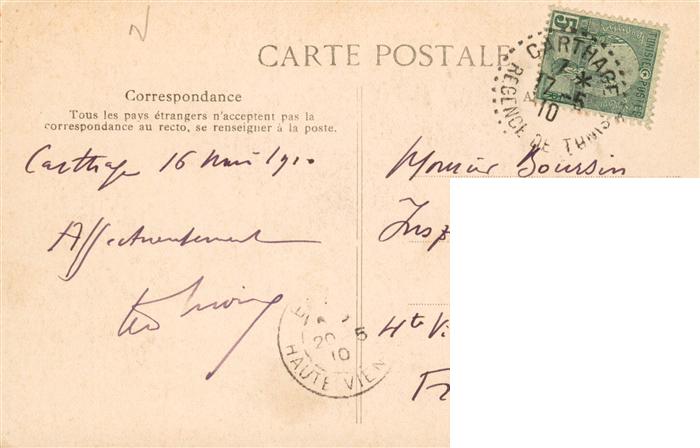 CARTE POSTALE
Correspondance
Tous les pays étrangers n'acceptent pas la
correspondance au recto, se renseigner à la poste.
Carthage 16 Mai 1910
Affectueusement
5
TUNISIE POSTES
CARTHAGE
17 - 5
10
REGENCE DE TUNISIE
Monsieur Boursin
Insp
4te Vi
Fr
20 5
10
HAUTE VIEN